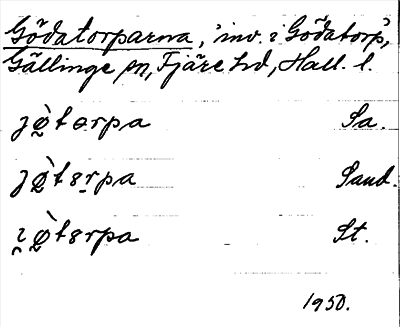 Gödatorparna, 'inv. i Gödatorp',
Gällinge sn, Fjäre hd, Hall. l.
jø̠̀tɵrpa Sa.
jø̠̀tɞr̠pa Sand.
i̯ø̠̀tɞrpa St.
1950.